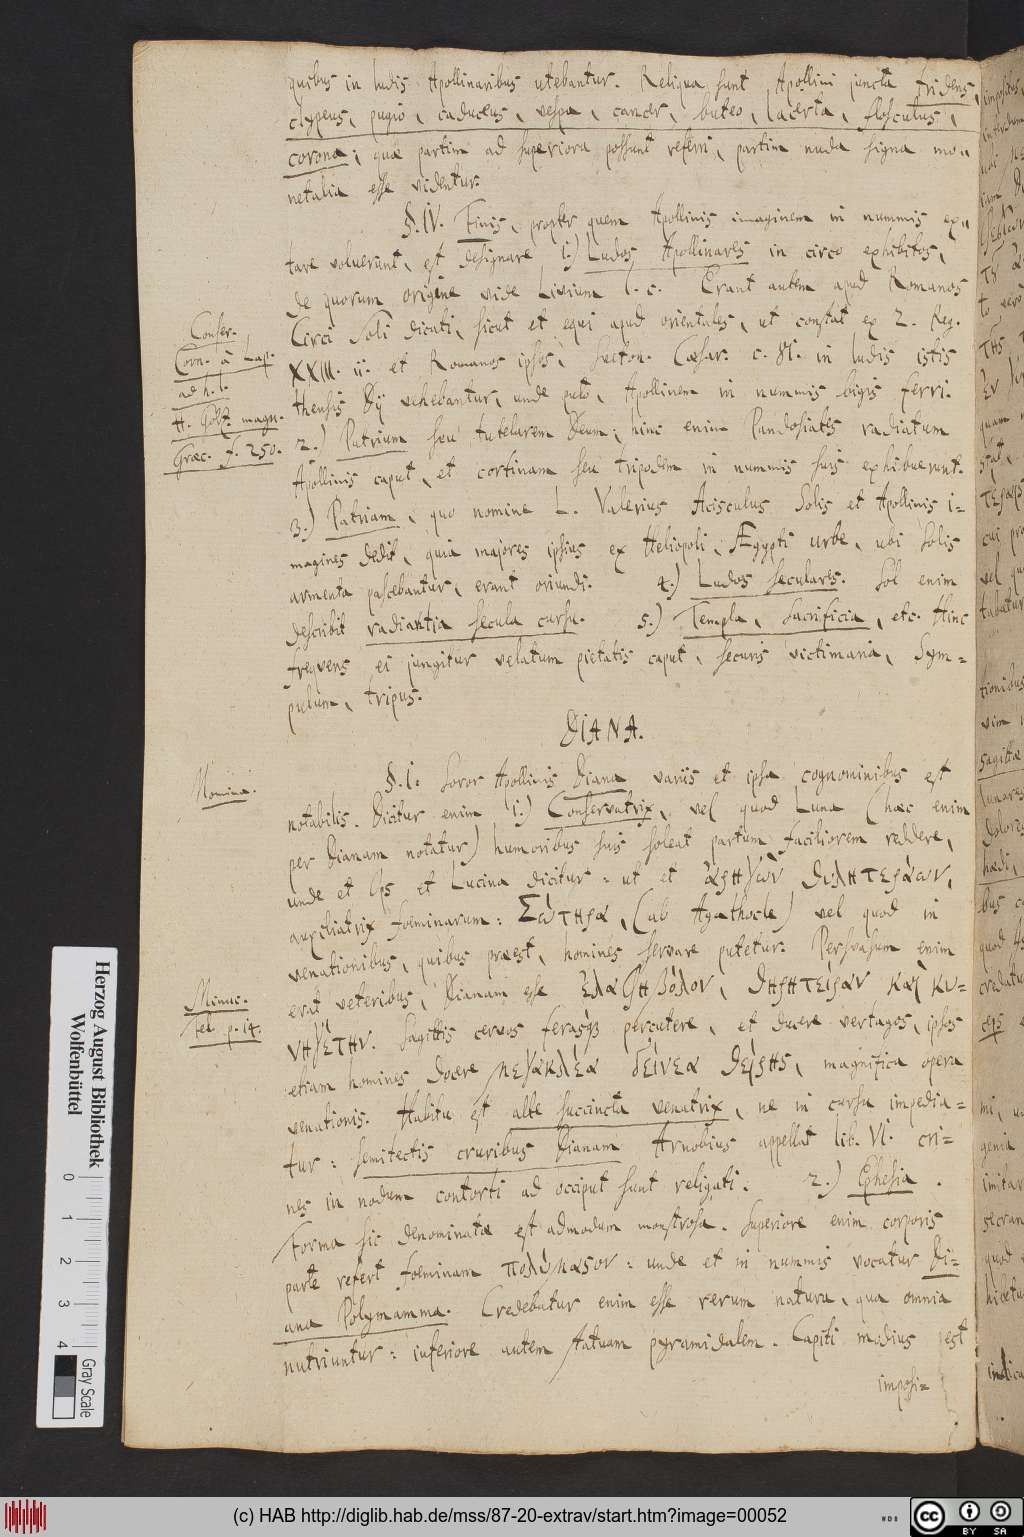 quibus in ludis Apollinaribus utebantur. Reliqua sunt Apollini juncta tridens,
clypeus, pugio, caduceus, vespa, cancer, buteo, lacerta, flosculus,
corona; quæ partim ad superiora possunt referri, partim nuda signa mo=
netalia esse videntur.
§. IV. Finis, propter quem Apollinis imaginem in nummis ex=
tare voluerunt, est designare 1.) Ludos Apollinares in circo exhibitos,
de quorum origine vide Livium l. c. Erant autem apud Romanos
Circi Soli dicati, sicut et equi apud orientales, ut constat ex 2. Reg.
XXIII. ii. et Romanos ipsos, Sueton. Cæsar. c. in ludis istis
thensis Dij vehebantur, unde puto, Apollinem in nummis bigis ferri.
2.) Patrium seu tutelarem Deum; hinc enim Pandosiates radiatum
Apollinis caput, et cortinam seu tripodem in nummis suis exhibuerunt.
3.) Patriam, quo nomine L. Valerius Acisculus Solis et Apollinis i=
magines dedit, quia majores ipsius ex Heliopoli, Ægypti urbe, ubi Solis
armenta pascebantur, erant oriundi. 4.) Ludos seculares. Sol enim
describit radiantia secula cursu. 5.) Templa, Sacrificia, etc. Hinc
frequens ei jungitur velatum pietatis caput, securis victimaria, Sym=
pulum, tripus.
Confer.
Corn. à Lap.
ad h. l.
H. Goltz. magn.
Græc. f. 250.
DIANA.
Nomina.
§. I. Soror Apollinis Diana variis et ipsa cognominibus est
notabilis. Dicitur enim 1.) Conservatrix, vel quod Luna (hæc enim
per Dianam notatur) humoribus suis soleat partum faciliorem reddere,
unde et Ops et Lucina dicitur: ut et ἀρηγὼν θηλητεράων,
auxiliatrix foeminarum: Σώτηρα, (ab Agathocle) vel quod in
venationibus, quibus præest, homines servare putetur. Persvasum enim
erat veteribus, Dianam esse ἐλαφηβόλον, θηρήτειραν καὶ κυ=
νηγέτην. Sagittis cervos ferasq3 percutere, et ducere vertagos, ipsos
etiam homines docere μεγακλέα δείνεα θείρης, magnifica opera
venationis. Habitu est alte succincta venatrix, ne in cursu impedia=
tur: semitectis cruribus Dianam Arnobius appellat lib. VI. cri=
nes in nodum contorti ad occiput sunt religati. 2.) Ephesia.
Forma sic denominatæ est admodum monstrosa. Superiore enim corporis
parte refert foeminam πολύμασον: unde et in nummis vocatur Di=
ana Polymamma. Credebatur enim esse rerum natura, qua omnia
nutriuntur: inferiore autem statuam pyramidalem. Capiti modius est
imposi=
Minuc.
Fel. p. 14.
Herzog August Bibliothek
Wolfenbüttel
0 1 2 3 4
Gray Scale
(c) HAB http://diglib.hab.de/mss/87-20-extrav/start.htm?image=00052
cc BY SA